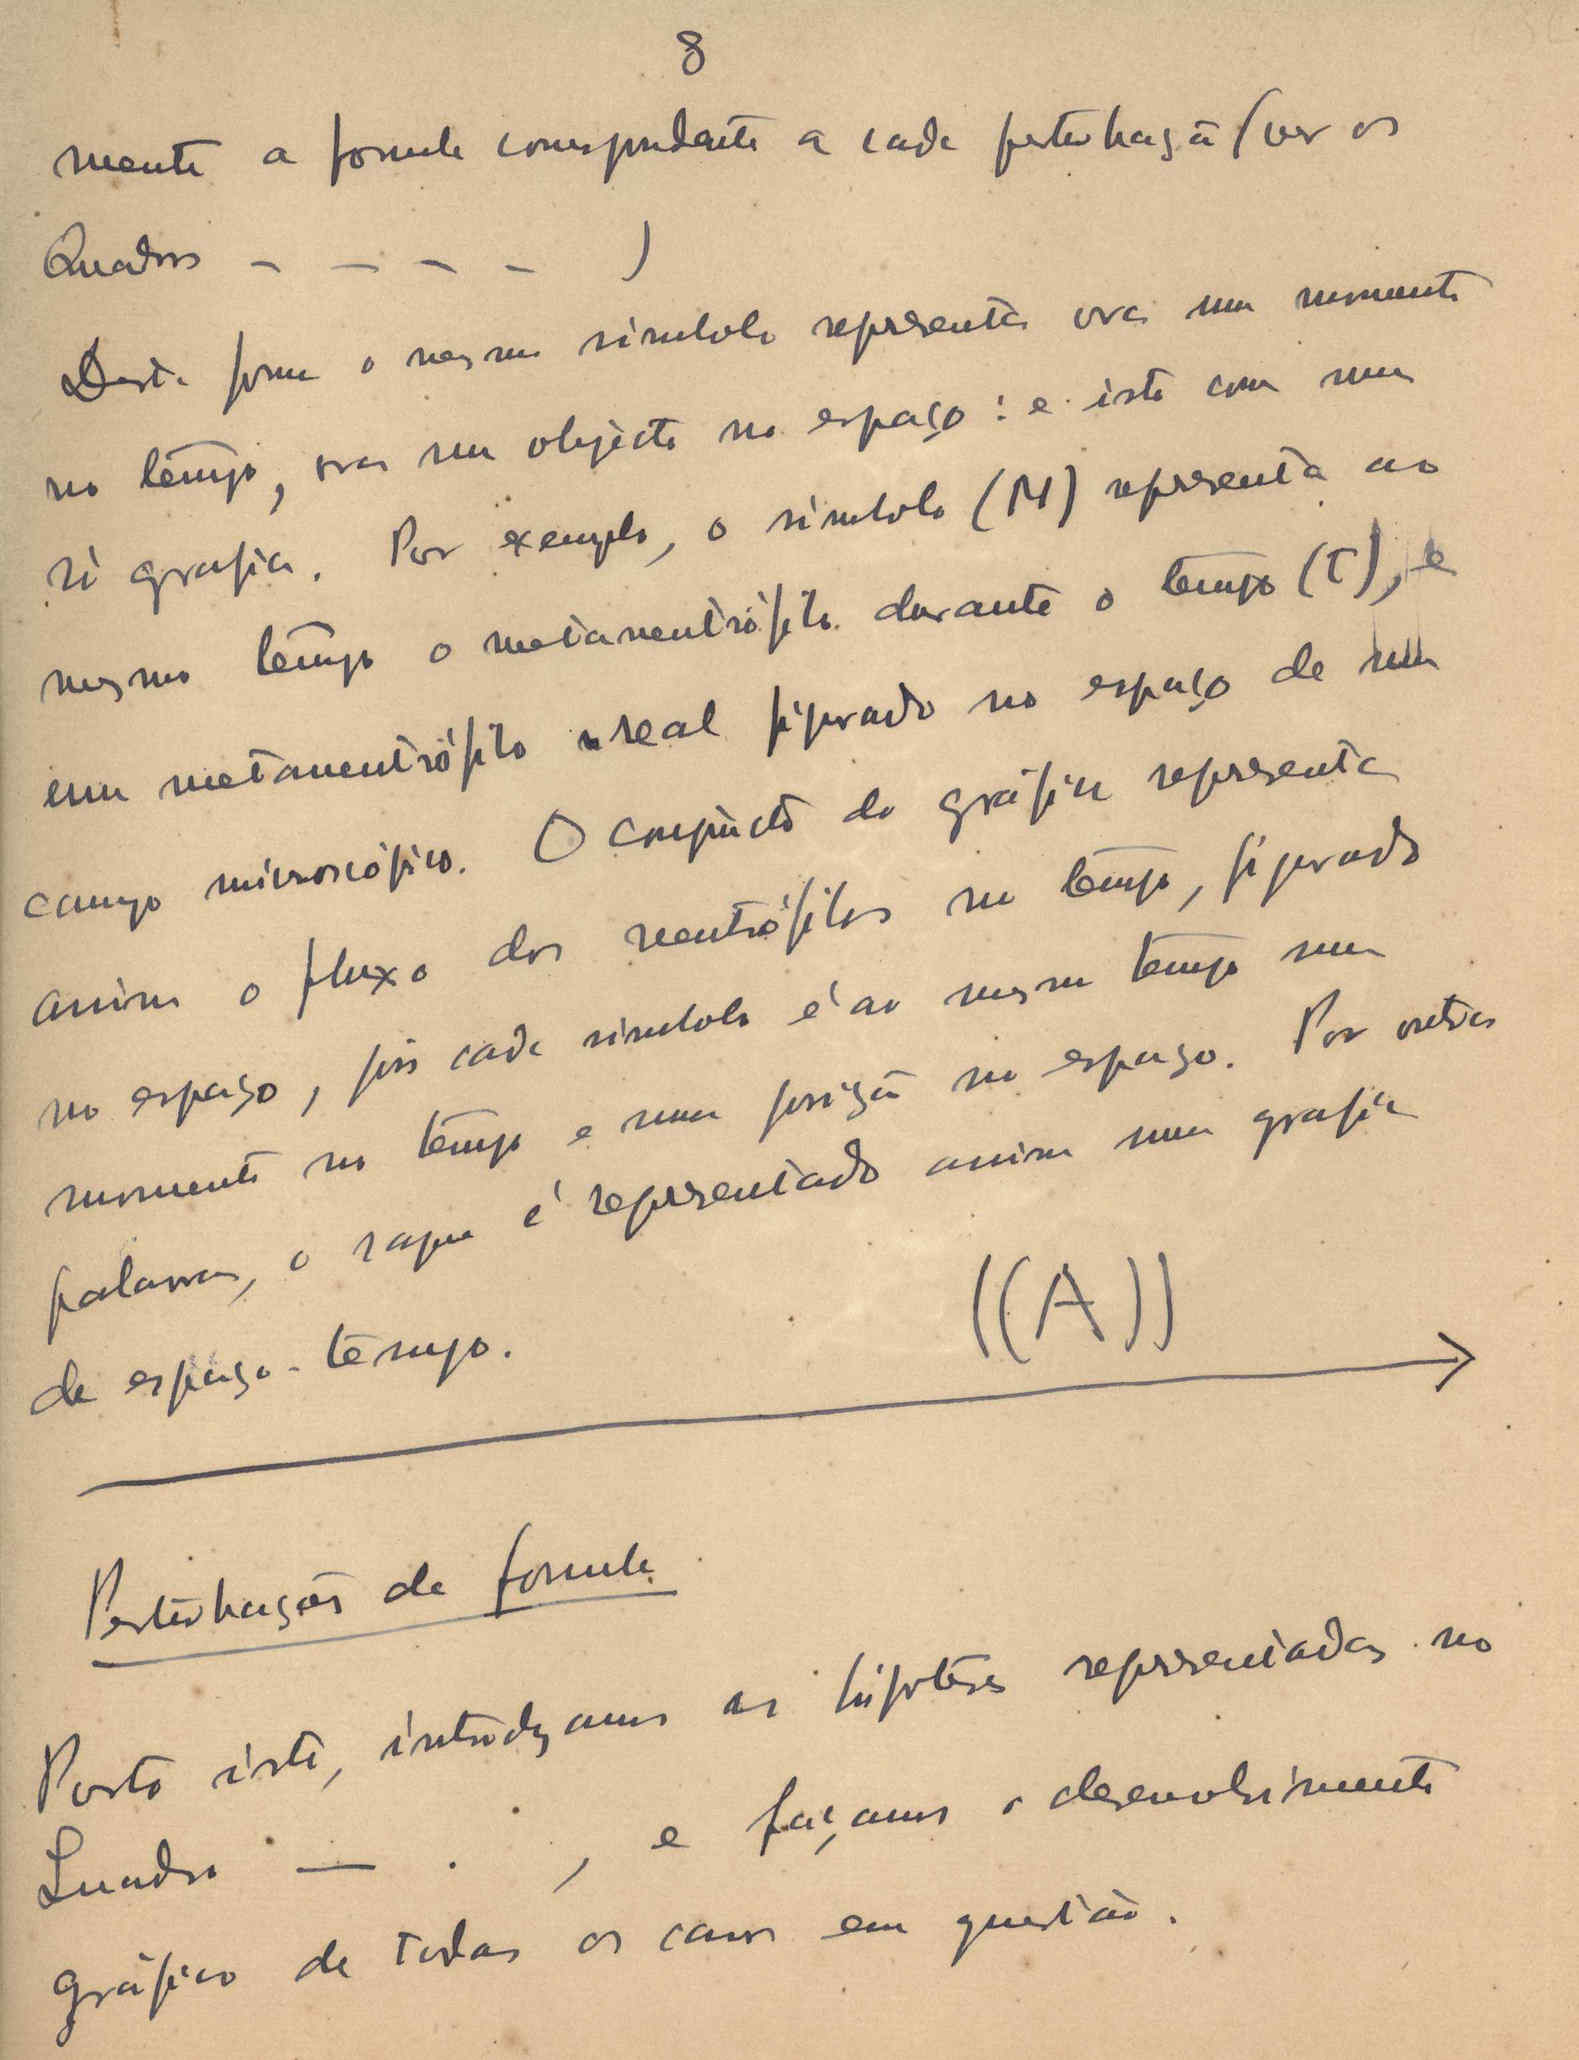 8
mente a formula correspondente a cada perturbação (ver os
Quadros - - - - )
Desta forma o mesmo simbolo representa ora um momento
no tempo, ora um objecto no espaço: e isto com uma
só grafia. Por exemplo, o simbolo (M) representa ao
mesmo tempo o metaneutrófilo durante o tempo (T), e
um metaneutrófilo real figurado no espaço de um
campo microscópico. O conjuncto da gráfica representa
assim o fluxo dos neutrófilos no tempo, figurado
no espaço, pois cada simbolo é ao mesmo tempo um
momento no tempo e uma posição no espaço. Por outras
palavras, o sangue é representado assim numa grafia
de espaço-tempo.
((A))
Perturbações da formula
Posto isto, introduzamos as hipoteses representadas no
Quadro — . , e façamos o desenvolvimento
gráfico de todos os casos em questão.